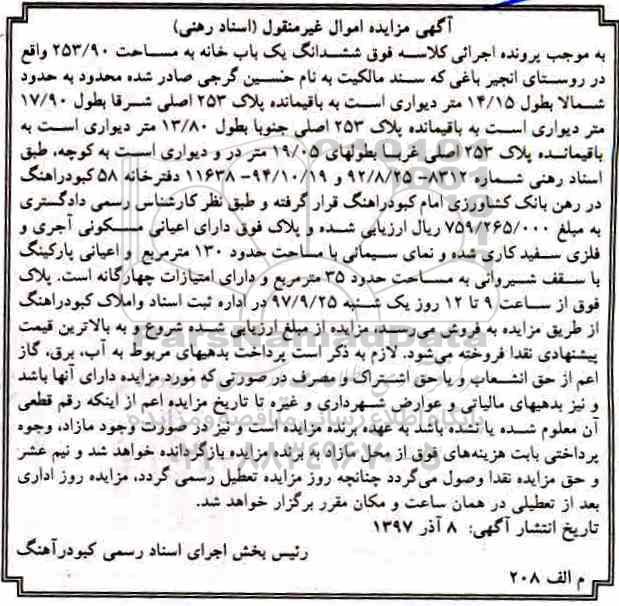 آگهی مزایده اموال غیرمنقول (اسناد رهنی)
به موجب پرونده اجرائی کلاسه فوق ششدانگ یک باب خانه به مساحت ۲۵۳/۹۰ واقع
در روستای انجیر باغی که سند مالکیت به نام حسین گرجی صادر شده محدود به حدود
شمالا بطول ۱۴/۱۵ متر دیواری است به باقیمانده پلاک ۲۵۳ اصلی شرقا بطول ۱۷/۹۰
متر دیواری است به باقیمانده پلاک ۲۵۳ اصلی جنوبا بطول ۱۳/۸۰ متر دیواری است به
باقیمانده پلاک ۲۵۳ اصلی غربا بطولهای ۱۹/۰۵ متر در و دیواری است به کوچه، طبق
اسناد رهنی شماره ۸۳۱۲- ۹۲/۸/۲۵ و ۹۴/۱۰/۱۹- ۱۱۶۳۸ دفترخانه ۵۸ کبودراهنگ
در رهن بانک کشاورزی امام کبودراهنگ قرار گرفته و طبق نظر کارشناس رسمی دادگستری
به مبلغ ۷۵۹/۲۶۵/۰۰۰ ریال ارزیابی شده و پلاک فوق دارای اعیانی مسکونی آجری و
فلزی سفید کاری شده و نمای سیمانی با مساحت حدود ۱۳۰ مترمربع و اعیانی پارکینگ
با سقف شیروانی به مساحت حدود ۳۵ مترمربع و دارای امتیازات چهارگانه است. پلاک
فوق از ساعت ۹ تا ۱۲ روز یک شنبه ۹۷/۹/۲۵ در اداره ثبت اسناد واملاک کبودراهنگ
از طریق مزایده به فروش می‌رسد، مزایده از مبلغ ارزیابی شده شروع و به بالاترین قیمت
پیشنهادی نقدا فروخته می‌شود. لازم به ذکر است پرداخت بدهیهای مربوط به آب، برق، گاز
اعم از حق انشعاب و یا حق اشتراک و مصرف در صورتی که مورد مزایده دارای آنها باشد
و نیز بدهیهای مالیاتی و عوارض شهرداری و غیره تا تاریخ مزایده اعم از اینکه رقم قطعی
آن معلوم شده یا نشده باشد به عهده برنده مزایده است و نیز در صورت وجود مازاد، وجوه
پرداختی بابت هزینه‌های فوق از محل مازاد به برنده مزایده بازگردانده خواهد شد و نیم عشر
و حق مزایده نقدا وصول می‌گردد چنانچه روز مزایده تعطیل رسمی گردد، مزایده روز اداری
بعد از تعطیلی در همان ساعت و مکان مقرر برگزار خواهد شد.
تاریخ انتشار آگهی: ۸ آذر ۱۳۹۷
رئیس بخش اجرای اسناد رسمی کبودرآهنگ
م الف ۲۰۸
ParsNamadData